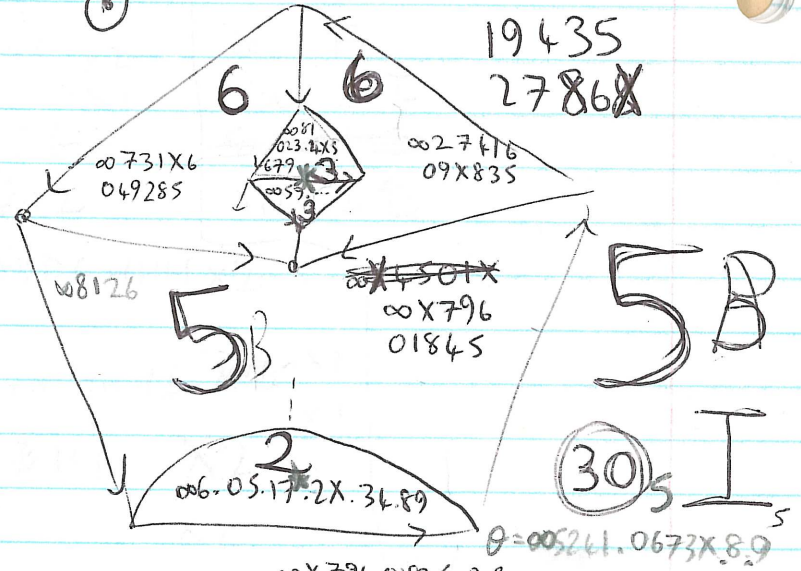 19435
2786X
6 6
∞731X6
049285
∞81
023.4X5
679
3
∞59....
3
∞27416
09X835
∞X4501X
∞X796
01845
∞8126
5B
5B
2
∞6.05.17.2X.34.89
30s Is
θ=∞5241.0673X.8.9